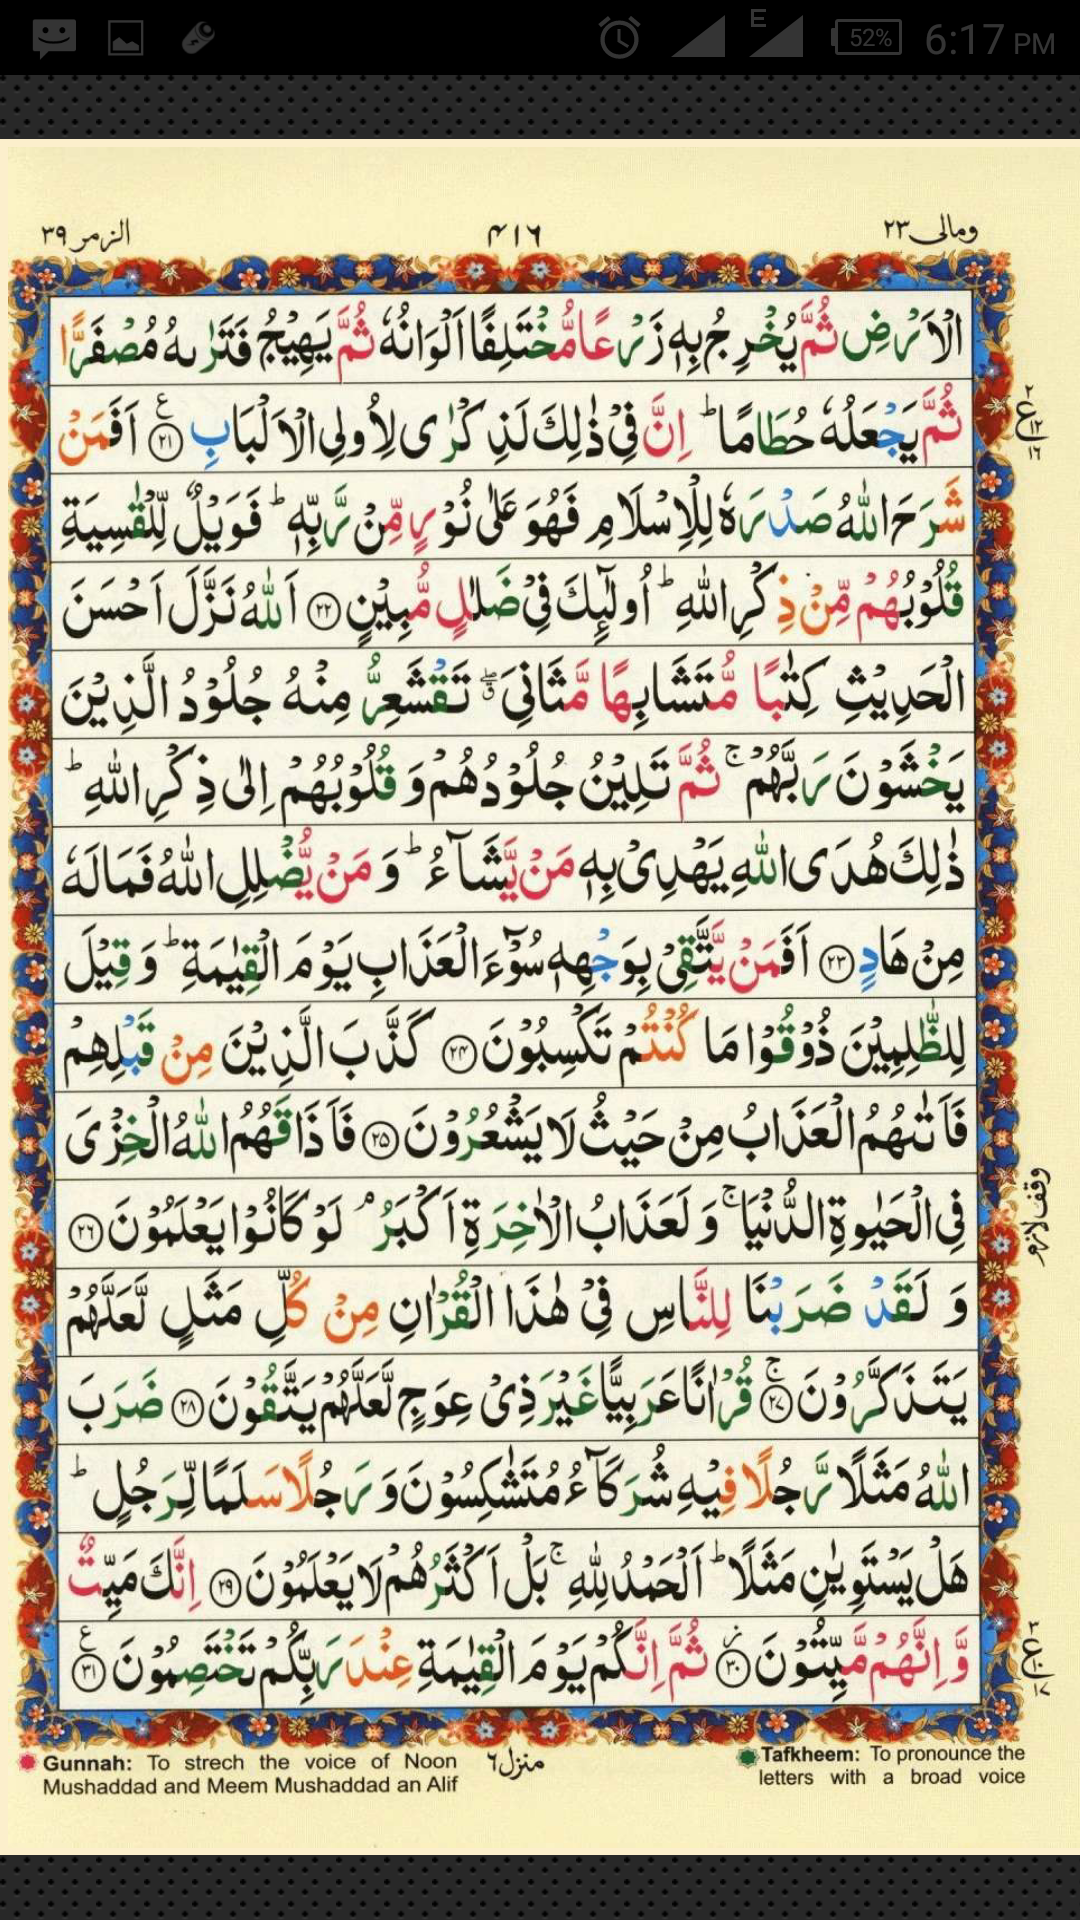 E 52% 6:17 PM
ومالی ٢٣ ۴١٦ الزمر ٣٩
الْاَرْضِ ثُمَّ یُخْرِجُ بِهٖ زَرْعًا مُّخْتَلِفًا اَلْوَانُهٗ ثُمَّ یَهِیْجُ فَتَرٰىهُ مُصْفَرًّا
ثُمَّ یَجْعَلُهٗ حُطَامًا ؕ اِنَّ فِیْ ذٰلِكَ لَذِكْرٰی لِاُولِی الْاَلْبَابِ ﴿۲۱﴾ ع اَفَمَنْ
شَرَحَ اللّٰهُ صَدْرَهٗ لِلْاِسْلَامِ فَهُوَ عَلٰی نُوْرٍ مِّنْ رَّبِّهٖ ؕ فَوَیْلٌ لِّلْقٰسِیَةِ
قُلُوْبُهُمْ مِّنْ ذِكْرِ اللّٰهِ ؕ اُولٰٓىِٕكَ فِیْ ضَلٰلٍ مُّبِیْنٍ ﴿۲۲﴾ اَللّٰهُ نَزَّلَ اَحْسَنَ
الْحَدِیْثِ كِتٰبًا مُّتَشَابِهًا مَّثَانِیَ ۖۗ تَقْشَعِرُّ مِنْهُ جُلُوْدُ الَّذِیْنَ
یَخْشَوْنَ رَبَّهُمْ ۚ ثُمَّ تَلِیْنُ جُلُوْدُهُمْ وَ قُلُوْبُهُمْ اِلٰی ذِكْرِ اللّٰهِ ؕ
ذٰلِكَ هُدَی اللّٰهِ یَهْدِیْ بِهٖ مَنْ یَّشَآءُ ؕ وَ مَنْ یُّضْلِلِ اللّٰهُ فَمَا لَهٗ
مِنْ هَادٍ ﴿۲۳﴾ اَفَمَنْ یَّتَّقِیْ بِوَجْهِهٖ سُوْٓءَ الْعَذَابِ یَوْمَ الْقِیٰمَةِ ؕ وَ قِیْلَ
لِلظّٰلِمِیْنَ ذُوْقُوْا مَا كُنْتُمْ تَكْسِبُوْنَ ﴿۲۴﴾ كَذَّبَ الَّذِیْنَ مِنْ قَبْلِهِمْ
فَاَتٰىهُمُ الْعَذَابُ مِنْ حَیْثُ لَا یَشْعُرُوْنَ ﴿۲۵﴾ فَاَذَاقَهُمُ اللّٰهُ الْخِزْیَ
فِی الْحَیٰوةِ الدُّنْیَا ۚ وَ لَعَذَابُ الْاٰخِرَةِ اَكْبَرُ ۘ لَوْ كَانُوْا یَعْلَمُوْنَ ﴿۲۶﴾
وَ لَقَدْ ضَرَبْنَا لِلنَّاسِ فِیْ هٰذَا الْقُرْاٰنِ مِنْ كُلِّ مَثَلٍ لَّعَلَّهُمْ
یَتَذَكَّرُوْنَ ﴿۲۷﴾ ۚ قُرْاٰنًا عَرَبِیًّا غَیْرَ ذِیْ عِوَجٍ لَّعَلَّهُمْ یَتَّقُوْنَ ﴿۲۸﴾ ضَرَبَ
اللّٰهُ مَثَلًا رَّجُلًا فِیْهِ شُرَكَآءُ مُتَشٰكِسُوْنَ وَ رَجُلًا سَلَمًا لِّرَجُلٍ ؕ
هَلْ یَسْتَوِیٰنِ مَثَلًا ؕ اَلْحَمْدُ لِلّٰهِ ۚ بَلْ اَكْثَرُهُمْ لَا یَعْلَمُوْنَ ﴿۲۹﴾ اِنَّكَ مَیِّتٌ
وَّ اِنَّهُمْ مَّیِّتُوْنَ ﴿۳۰﴾ ؗ ثُمَّ اِنَّكُمْ یَوْمَ الْقِیٰمَةِ عِنْدَ رَبِّكُمْ تَخْتَصِمُوْنَ ﴿۳۱﴾ ع
٢ ع ١٢ ١٦
وقف لازم
٣ ع ١٠
منزل ٦
Gunnah: To strech the voice of Noon
Mushaddad and Meem Mushaddad an Alif
Tafkheem: To pronounce the
letters with a broad voice